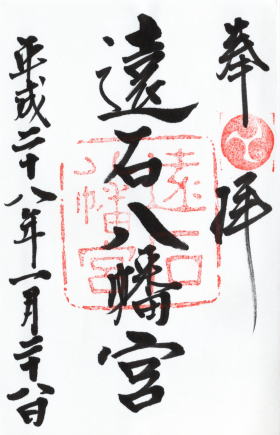 奉拝
遠石八幡宮
遠石八幡宮
平成二十八年一月二十八日